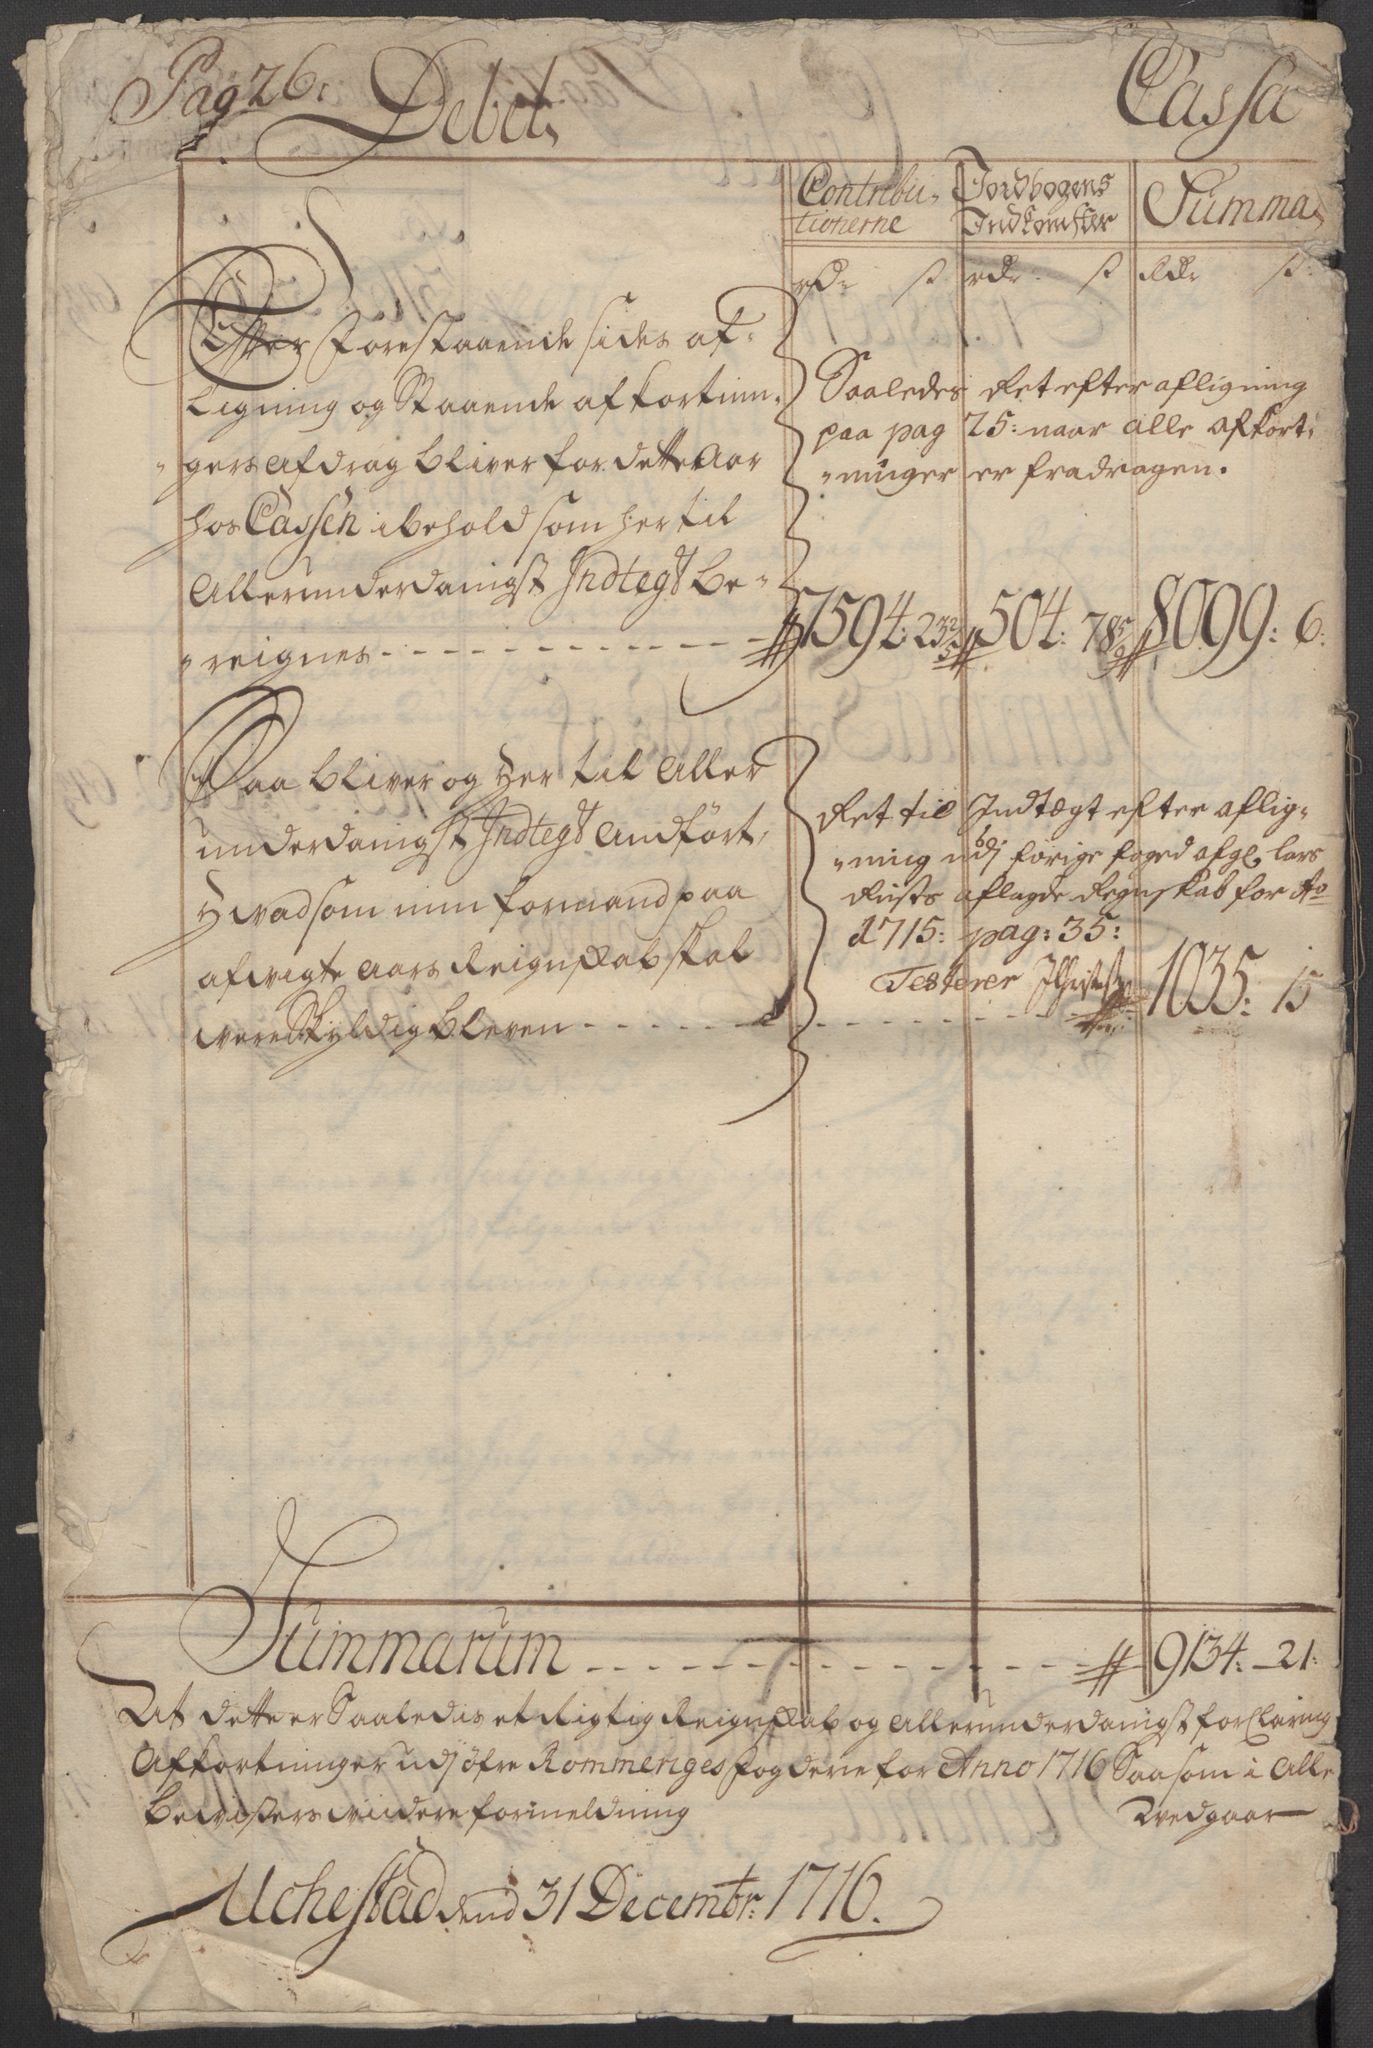 Pag 26: Debet, Cassa
Contribu-
tionerne
Jordbogens
Indkomster
Summa,
rdr ß rdr ß Rdr ß:
Efter Forestaaende sides af-
ligning og Staaende afkortnin-
gers afdrag bliver for dette Aar
hos Cassen i behold som her til
Allerunderdanigst Indtegt be-
reignes - - - - - - - - - - - -
Saaledes Ret efter afligning
paa pag 25: naar alle afkort-
ninger er fradragen.
7594: 23 2/5 504: 78 5/9 8099: 6:
Saa bliver og Her til Aller
underdanigst Indtegt Andført,
Hvad som min formand paa
afvigte Aars Reignskab skal
være Skyldig bleven - - - - - -
Ret til Indtægt efter aflig-
ning udj forige foged afg. Lars
Rusts aflagde Regnskab for Ao
1715: pag: 35:
Testerer
1035: 15
Summarum - - - - - - - - 9134: 21:
At dette er Saaledis et Rigtig Reignskab og Allerunderdanigst forClaring
Afkortninger udj øfre Rommeriges Fogderie for Anno 1716 Saasom i Alle
bevisers viidere formeldning Wedgaar
Uchestad dend 31 Decembr: 1716.